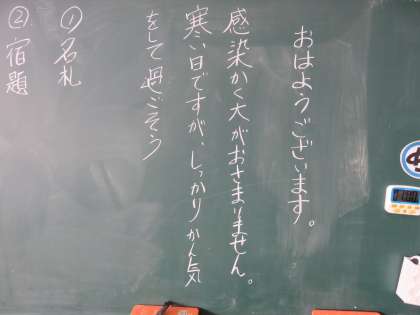 おはようございます。
感染かく大がおさまりません。
寒い日ですが、しっかりかん気
をして過ごそう
①名札
②宿題